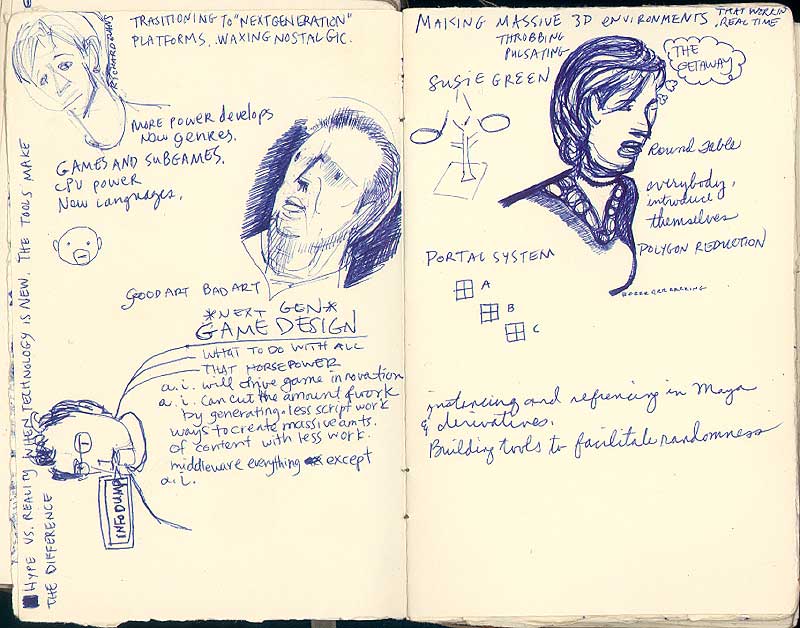 TRASITIONING TO "NEXT GENERATION"
PLATFORMS. WAXING NOSTALGIC.
MORE POWER develops
New genres.
GAMES AND SUBGAMES.
CPU POWER
New Languages.
GOOD ART BAD ART
*NEXT GEN*
GAME DESIGN
WHAT TO DO WITH ALL
THAT HORSEPOWER
a.i. will drive game innovation
a.i. can cut the amount of work
by generating less script work
ways to create massive amts.
of content with less work.
middleware everything except
a.i.
INFODUMP
HYPE VS. REALITY WHEN TECHNOLOGY IS NEW. THE TOOLS MAKE
THE DIFFERENCE
MAKING MASSIVE 3D ENVIRONMENTS THAT WORK IN
REAL TIME
THROBBING
PULSATING
SUSIE GREEN
THE
GETAWAY
Round Table
everybody,
introduce
themselves
POLYGON REDUCTION
PORTAL SYSTEM
A
B
C
instancing and refrencing in Maya
& derivatives.
Building tools to facilitate randomness